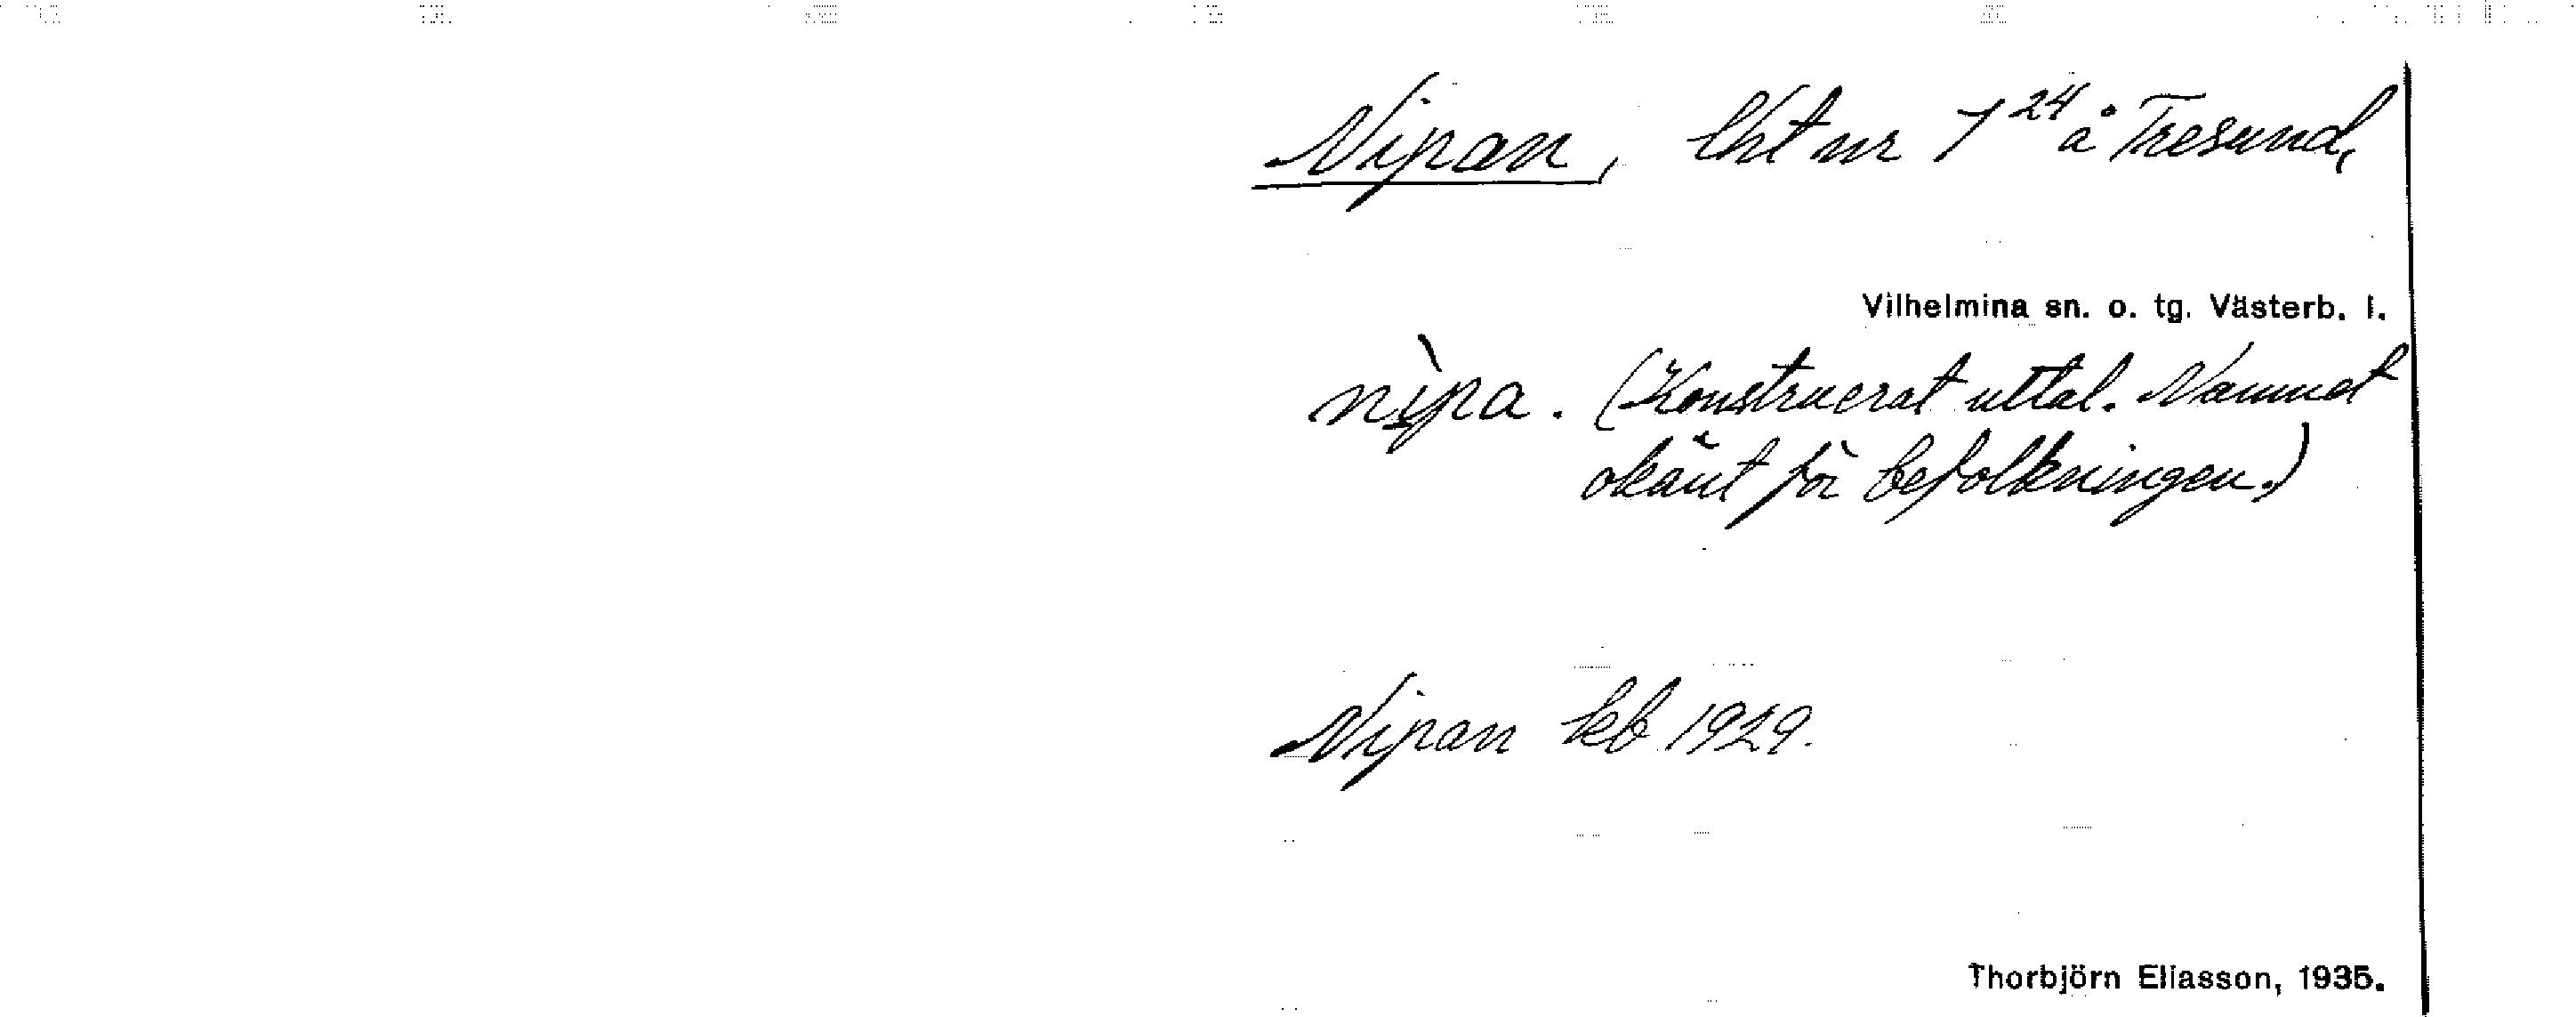 Nipan, lht nr 1²⁴ å Tresund,
Vilhelmina sn. o. tg. Västerb. l.
nìpa. (Konstruerat uttal. Namnet
okänt för befolkningen.)
Nipan kb 1929.
Thorbjörn Eliasson, 1935.